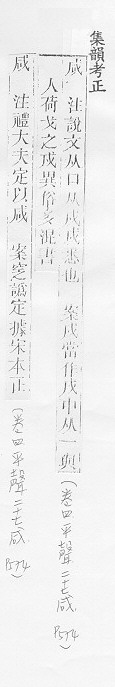 集韻考正
咸　注說文从口从戌戌悉也　案戌當作戊中从一與
人荷戈之戍異俗多混書（卷四平聲二十七咸 P574）
咸　注禮大夫定以咸　案窆譌定據宋本正（卷四平聲二十七咸 P574）